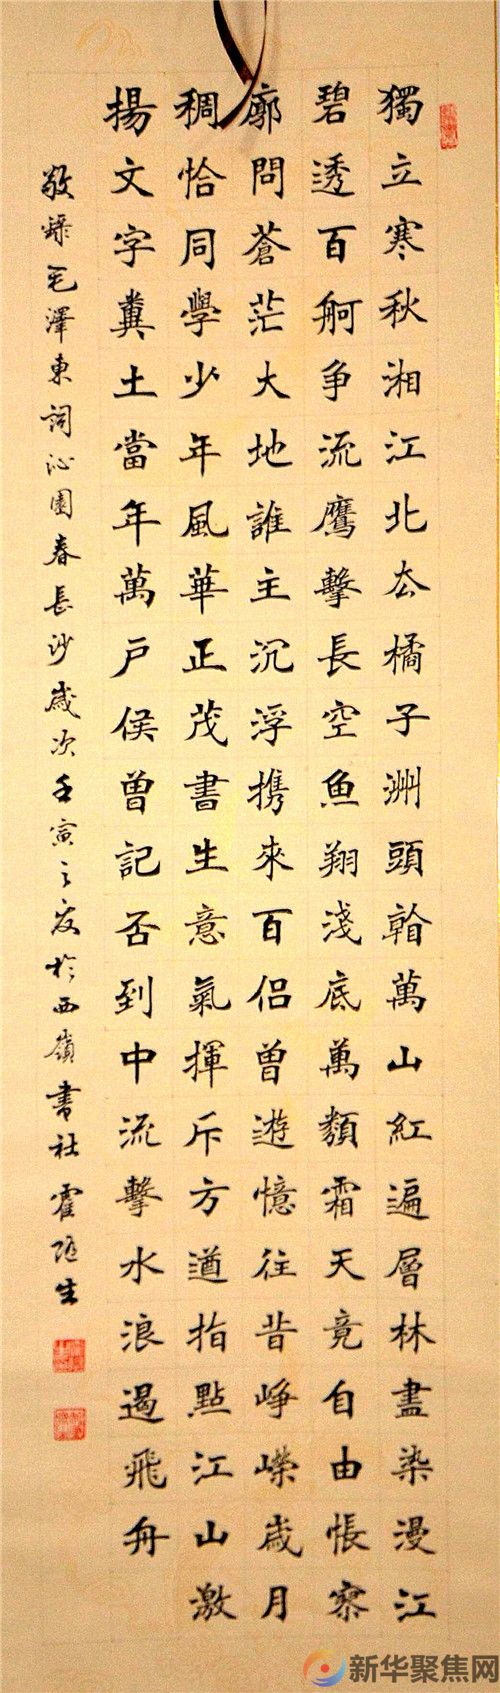 獨立寒秋湘江北去橘子洲頭看萬山紅遍層林盡染漫江
碧透百舸争流鷹擊長空魚翔淺底萬類霜天竟自由悵寥
廓問蒼茫大地誰主沉浮携來百侣曾遊憶往昔崢嶸歲月
稠恰同學少年風華正茂書生意氣揮斥方遒指點江山激
揚文字糞土當年萬户侯曾記否到中流擊水浪遏飛舟
敬錄毛澤東詞沁園春長沙歲次壬寅之夏於西嶺書社霍延生
新华聚焦网